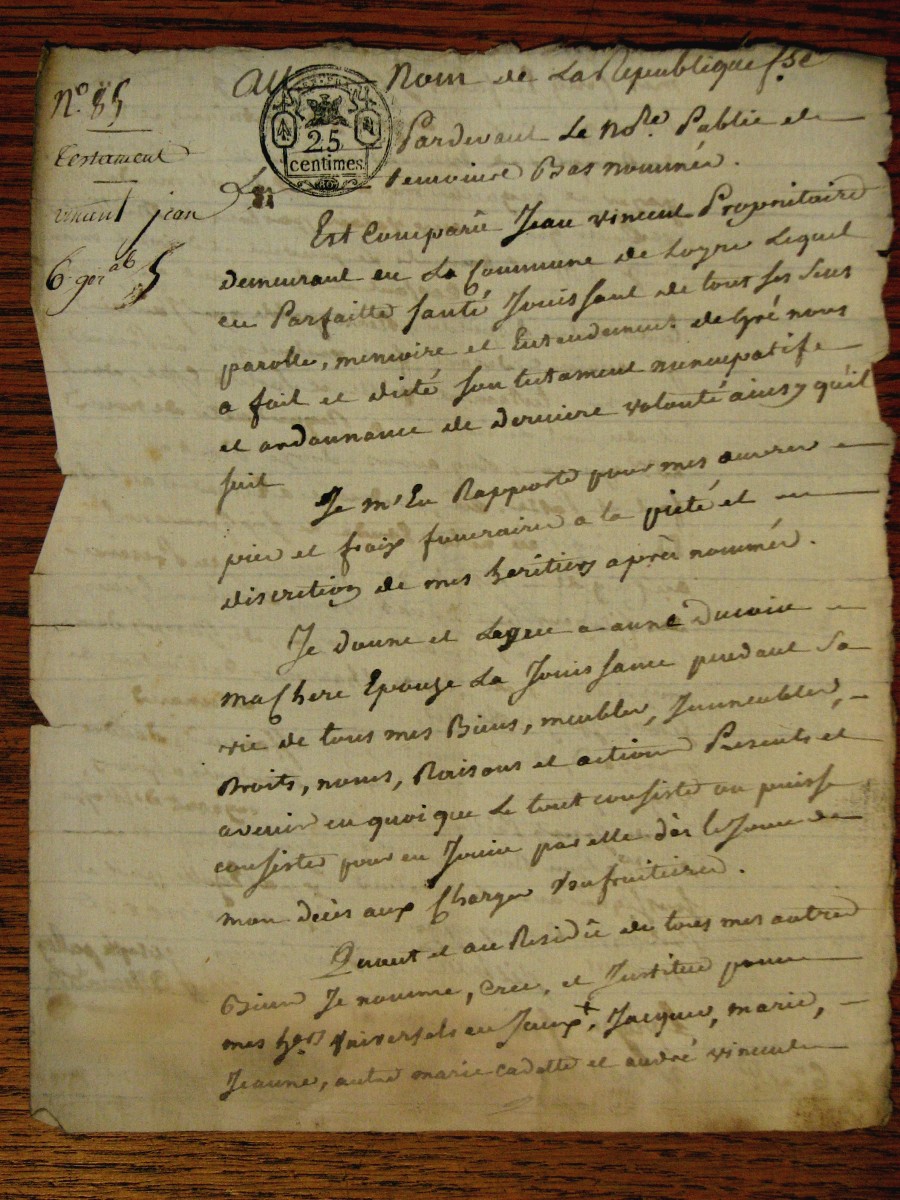 Nº. 85
testament
vincent jean
6. ger ab 5
Au Nom de La Republique fse
25
centimes
Pardevant Le Nore. Public et
temoins Bas nommés.
Est Comparû Jean vincent Propriétaire
demeurant en La Commune de Loyre Lequel
en Parfaitte santé Jouissant de tous ses sens
parolle, memoire et Entendement de Gré nous
a fait et dicté son testament nuncupatif
et ordonnance de derniere volonté ainsy qu'il
suit
Je m'En Rapporte pour mes œuvres
pies et fraix funeraires a la pieté et
discretion de mes heritiers après nommés.
Je donne et Legue a anne
ma Chere Epouze La Jouissance pendant Sa
vie de tous mes Biens, meubles, Immeubles,
Droits, noms, Raisons et actions Presents et
avenir en quoi que Le tout consiste ou puisse
consister pour en Jouir par elle dès le Jour de
mon decès aux Charges Usufruitieres.
Quant et au Residû de tous mes autres
Biens Je nomme, crée, et Institue pour
mes hers. Universels Jacques, marie,
Jeanne, autre marie cadette et andré vincent